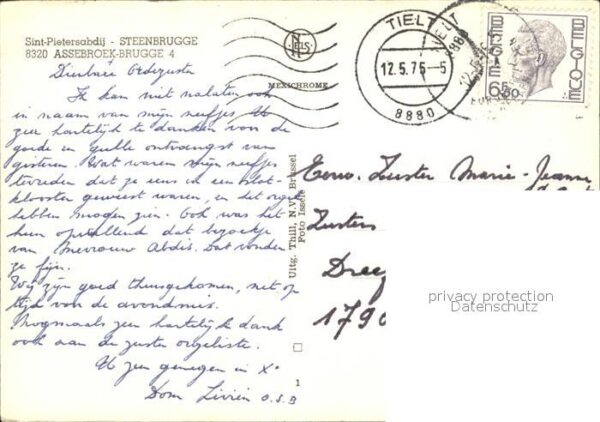 Sint-Pietersabdij - STEENBRUGGE
8320 ASSEBROEK-BRUGGE 4
NELS
MEXICHROME
TIELT
12.5.75-5
8880
BELGIE
BELGIQUE
6,50
Dierbare
Ik kan niet nalaten ook
in naam van mijn neefjes U
zeer hartelijk te danken voor de
goede en gulle ontvangst van
gisteren. Wat waren mijn neefjes
tevreden dat ze eens in een slot-
klooster geweest waren, en het orgel
hebben mogen zien. Ook was het
hun opvallend dat bezoekje
van Mevrouw Abdis. Dat vonden
ze fijn.
Wij zijn goed thuisgekomen, net op
tijd van de avondmis.
Nogmaals zeer hartelijk dank
ook aan de zuster orgeliste.
U zeer genegen in X°
Dom Livien O.S.B
Uitg. Thill, N.V. Brussel
Foto Issele
1
Eerw. Zuster Marie-Jeanne
Zusters
179
privacy protection
Datenschutz